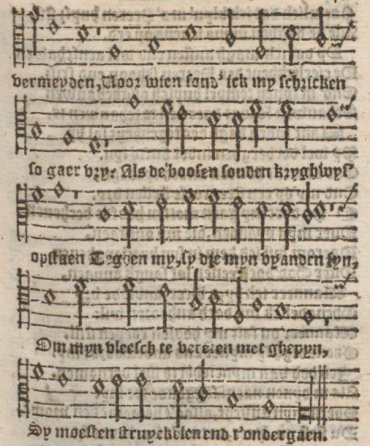 vermeyden, Voor wien soud' ick my schricken
so gaer vry? Als de boosen souden kryghwys
opstaen Teghen my, sy die myn vyanden syn,
Om myn vleesch te vereten met ghepyn,
Sy moesten struyckelen end t'ondergaen.